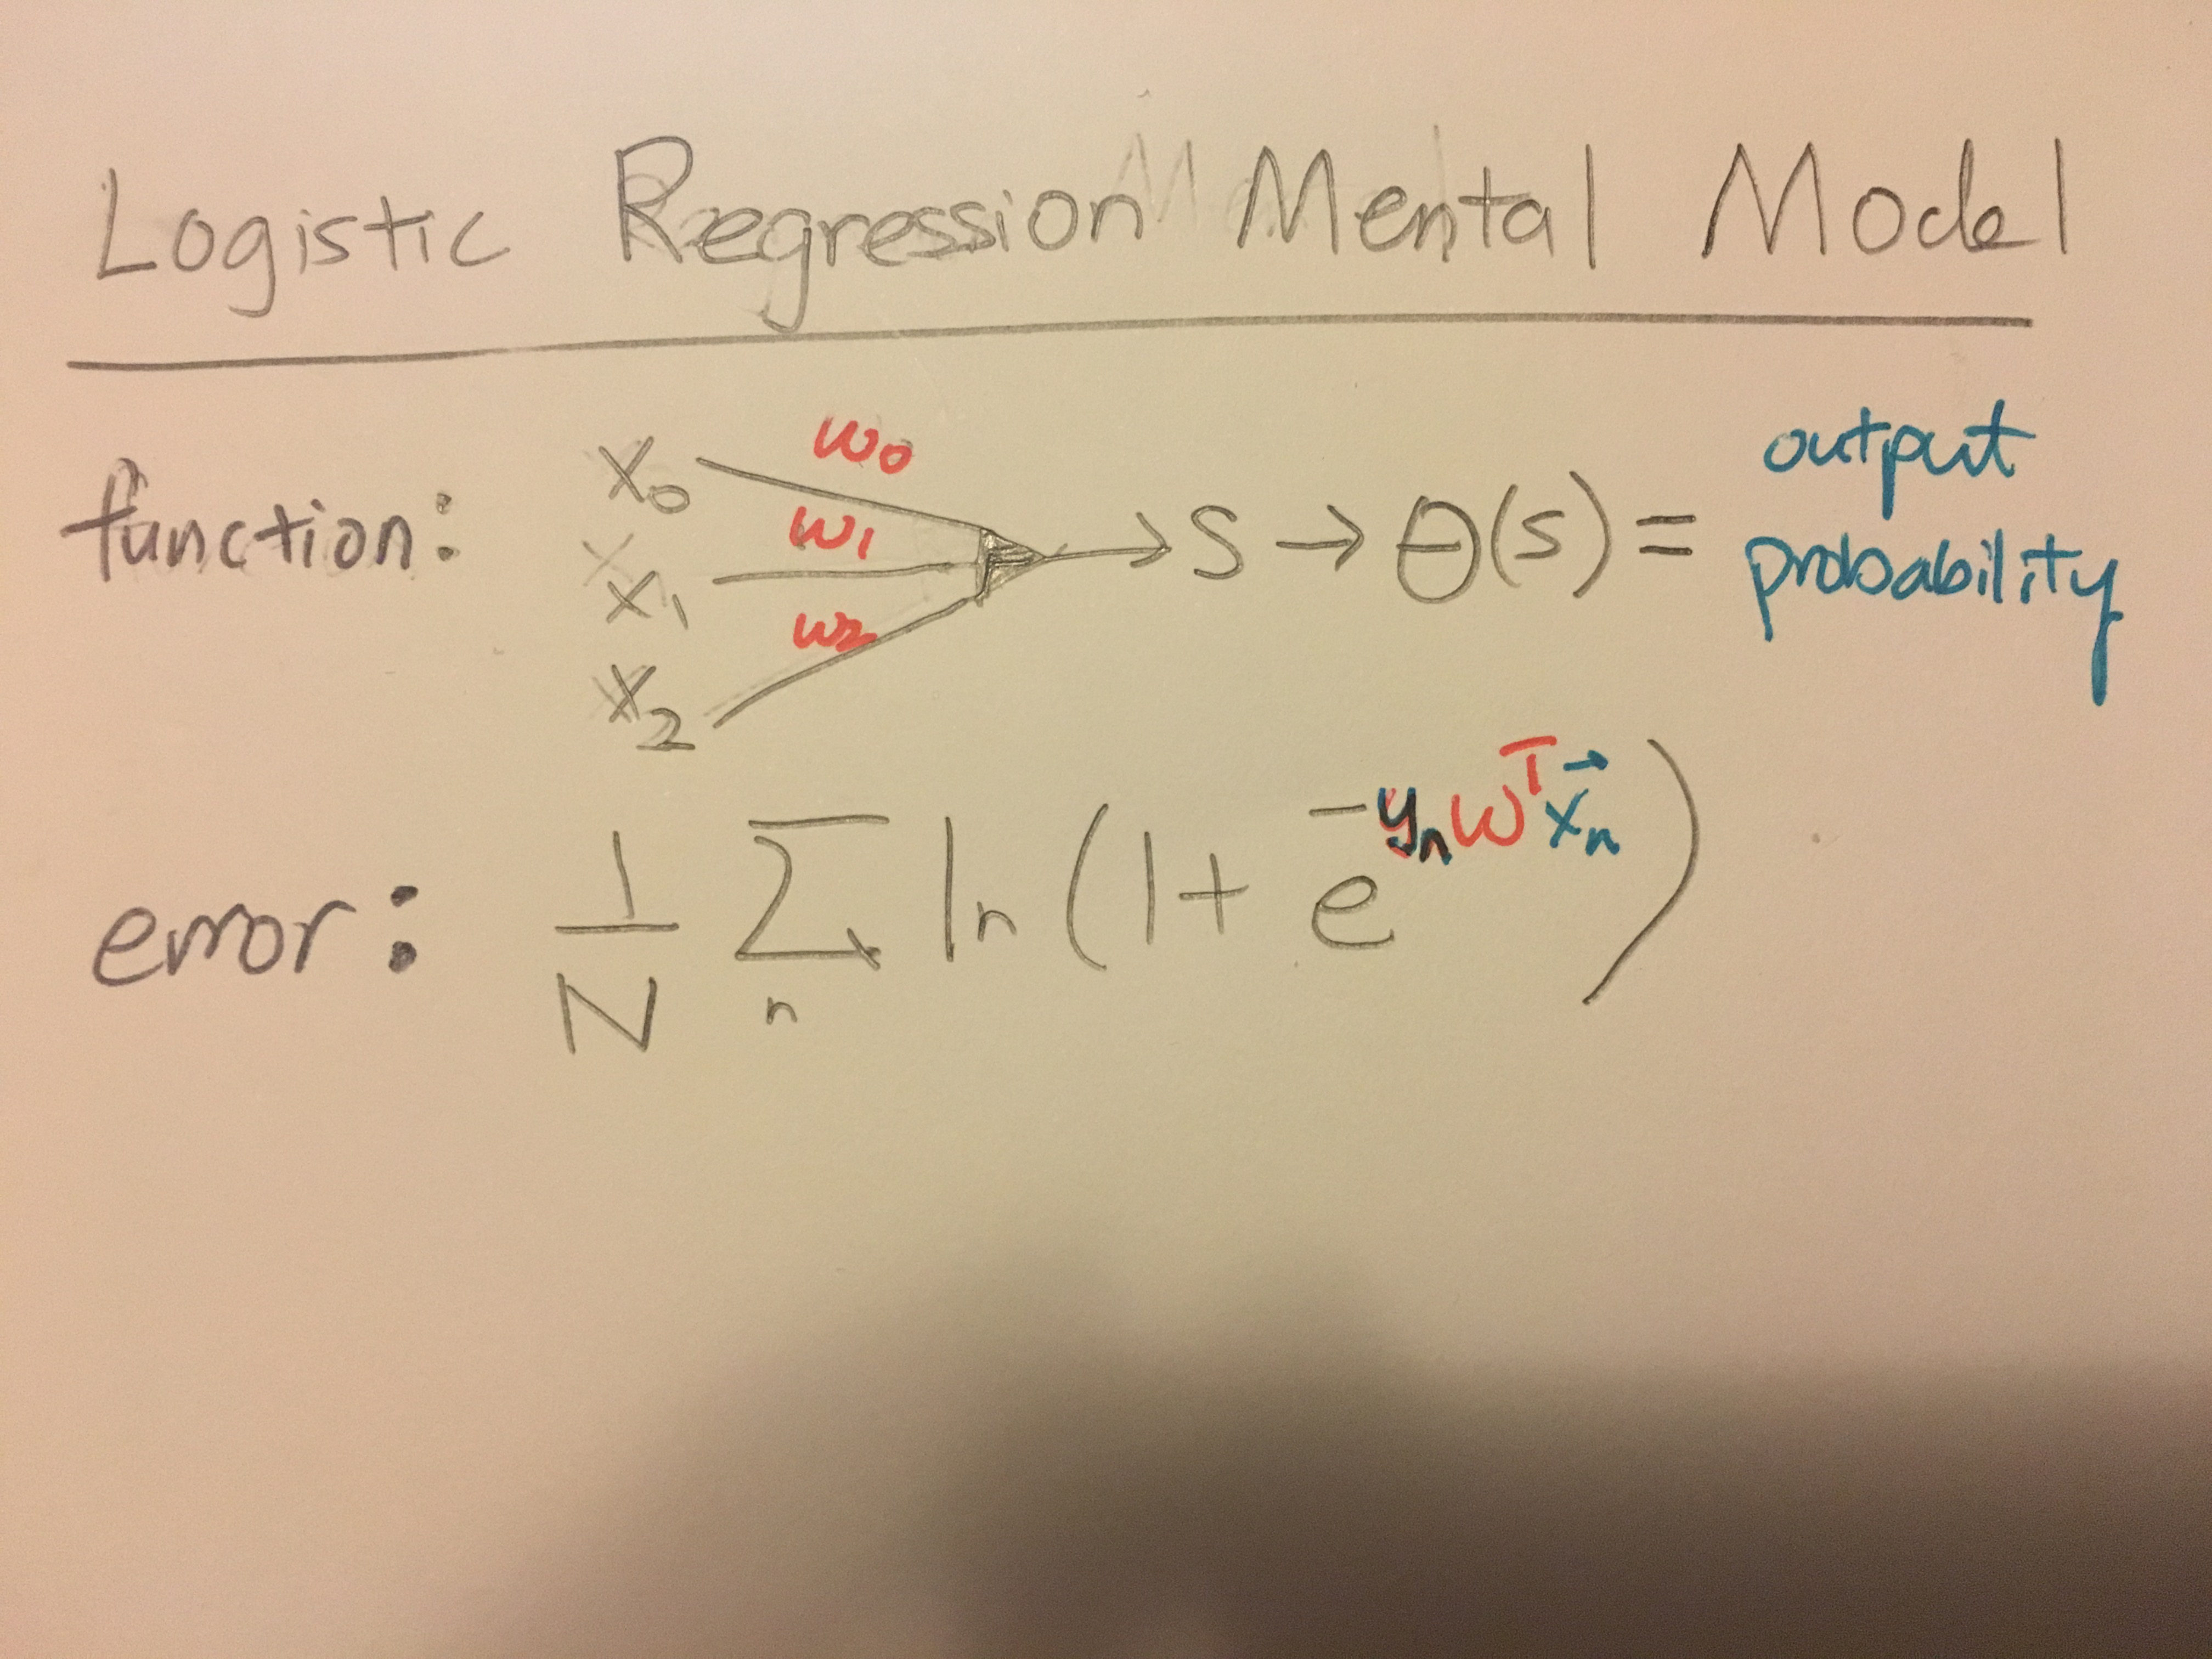 Logistic Regression Mental Model
function: x₀ w₀ x₁ w₁ x₂ w₂ → S → θ(s) = output probability
error: 1/N Σₙ ln(1 + e^(-yₙ wᵀ x⃗ₙ))